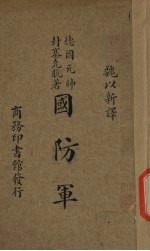 魏以新譯
德國元帥
封塞克脫著
國防軍
商務印書館發行